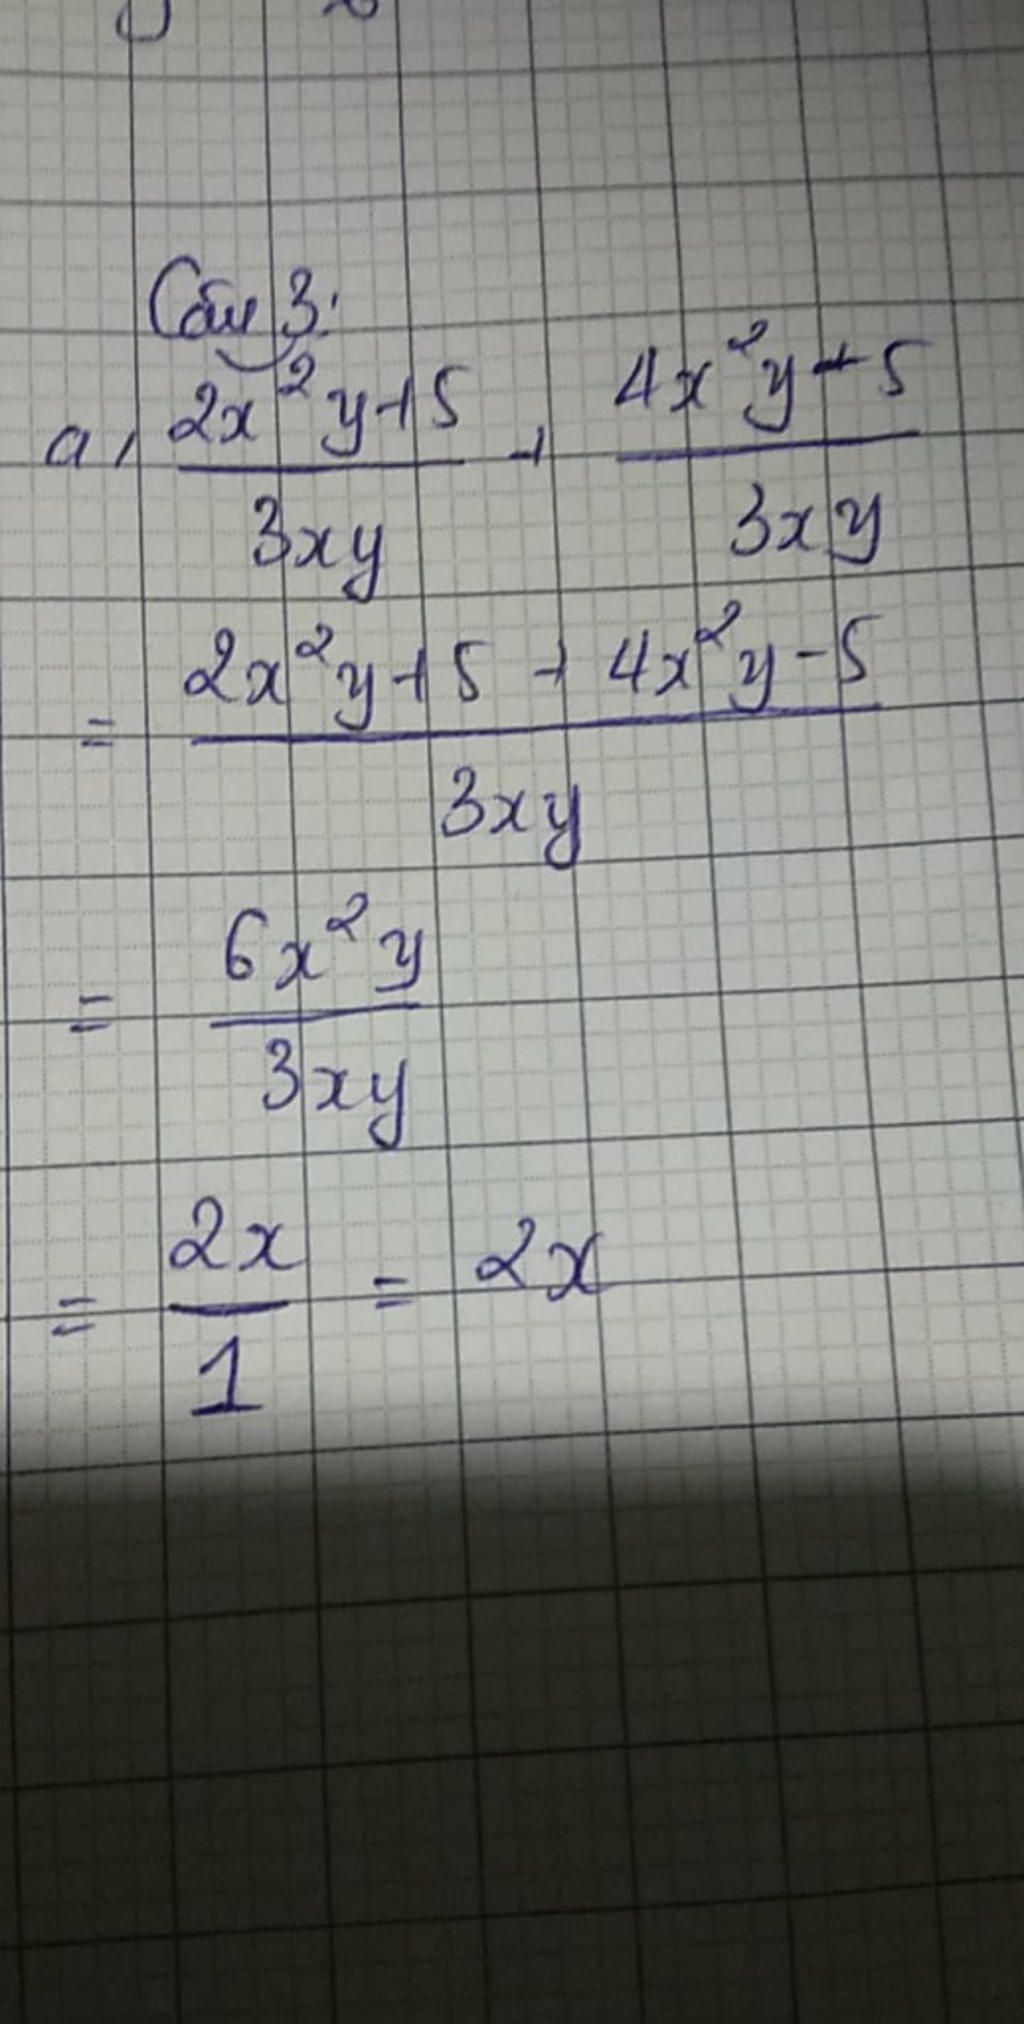 Câu 3:
a, \frac{2x^2y+5}{3xy} + \frac{4x^2y-5}{3xy}
= \frac{2x^2y+5+4x^2y-5}{3xy}
= \frac{6x^2y}{3xy}
= \frac{2x}{1} = 2x